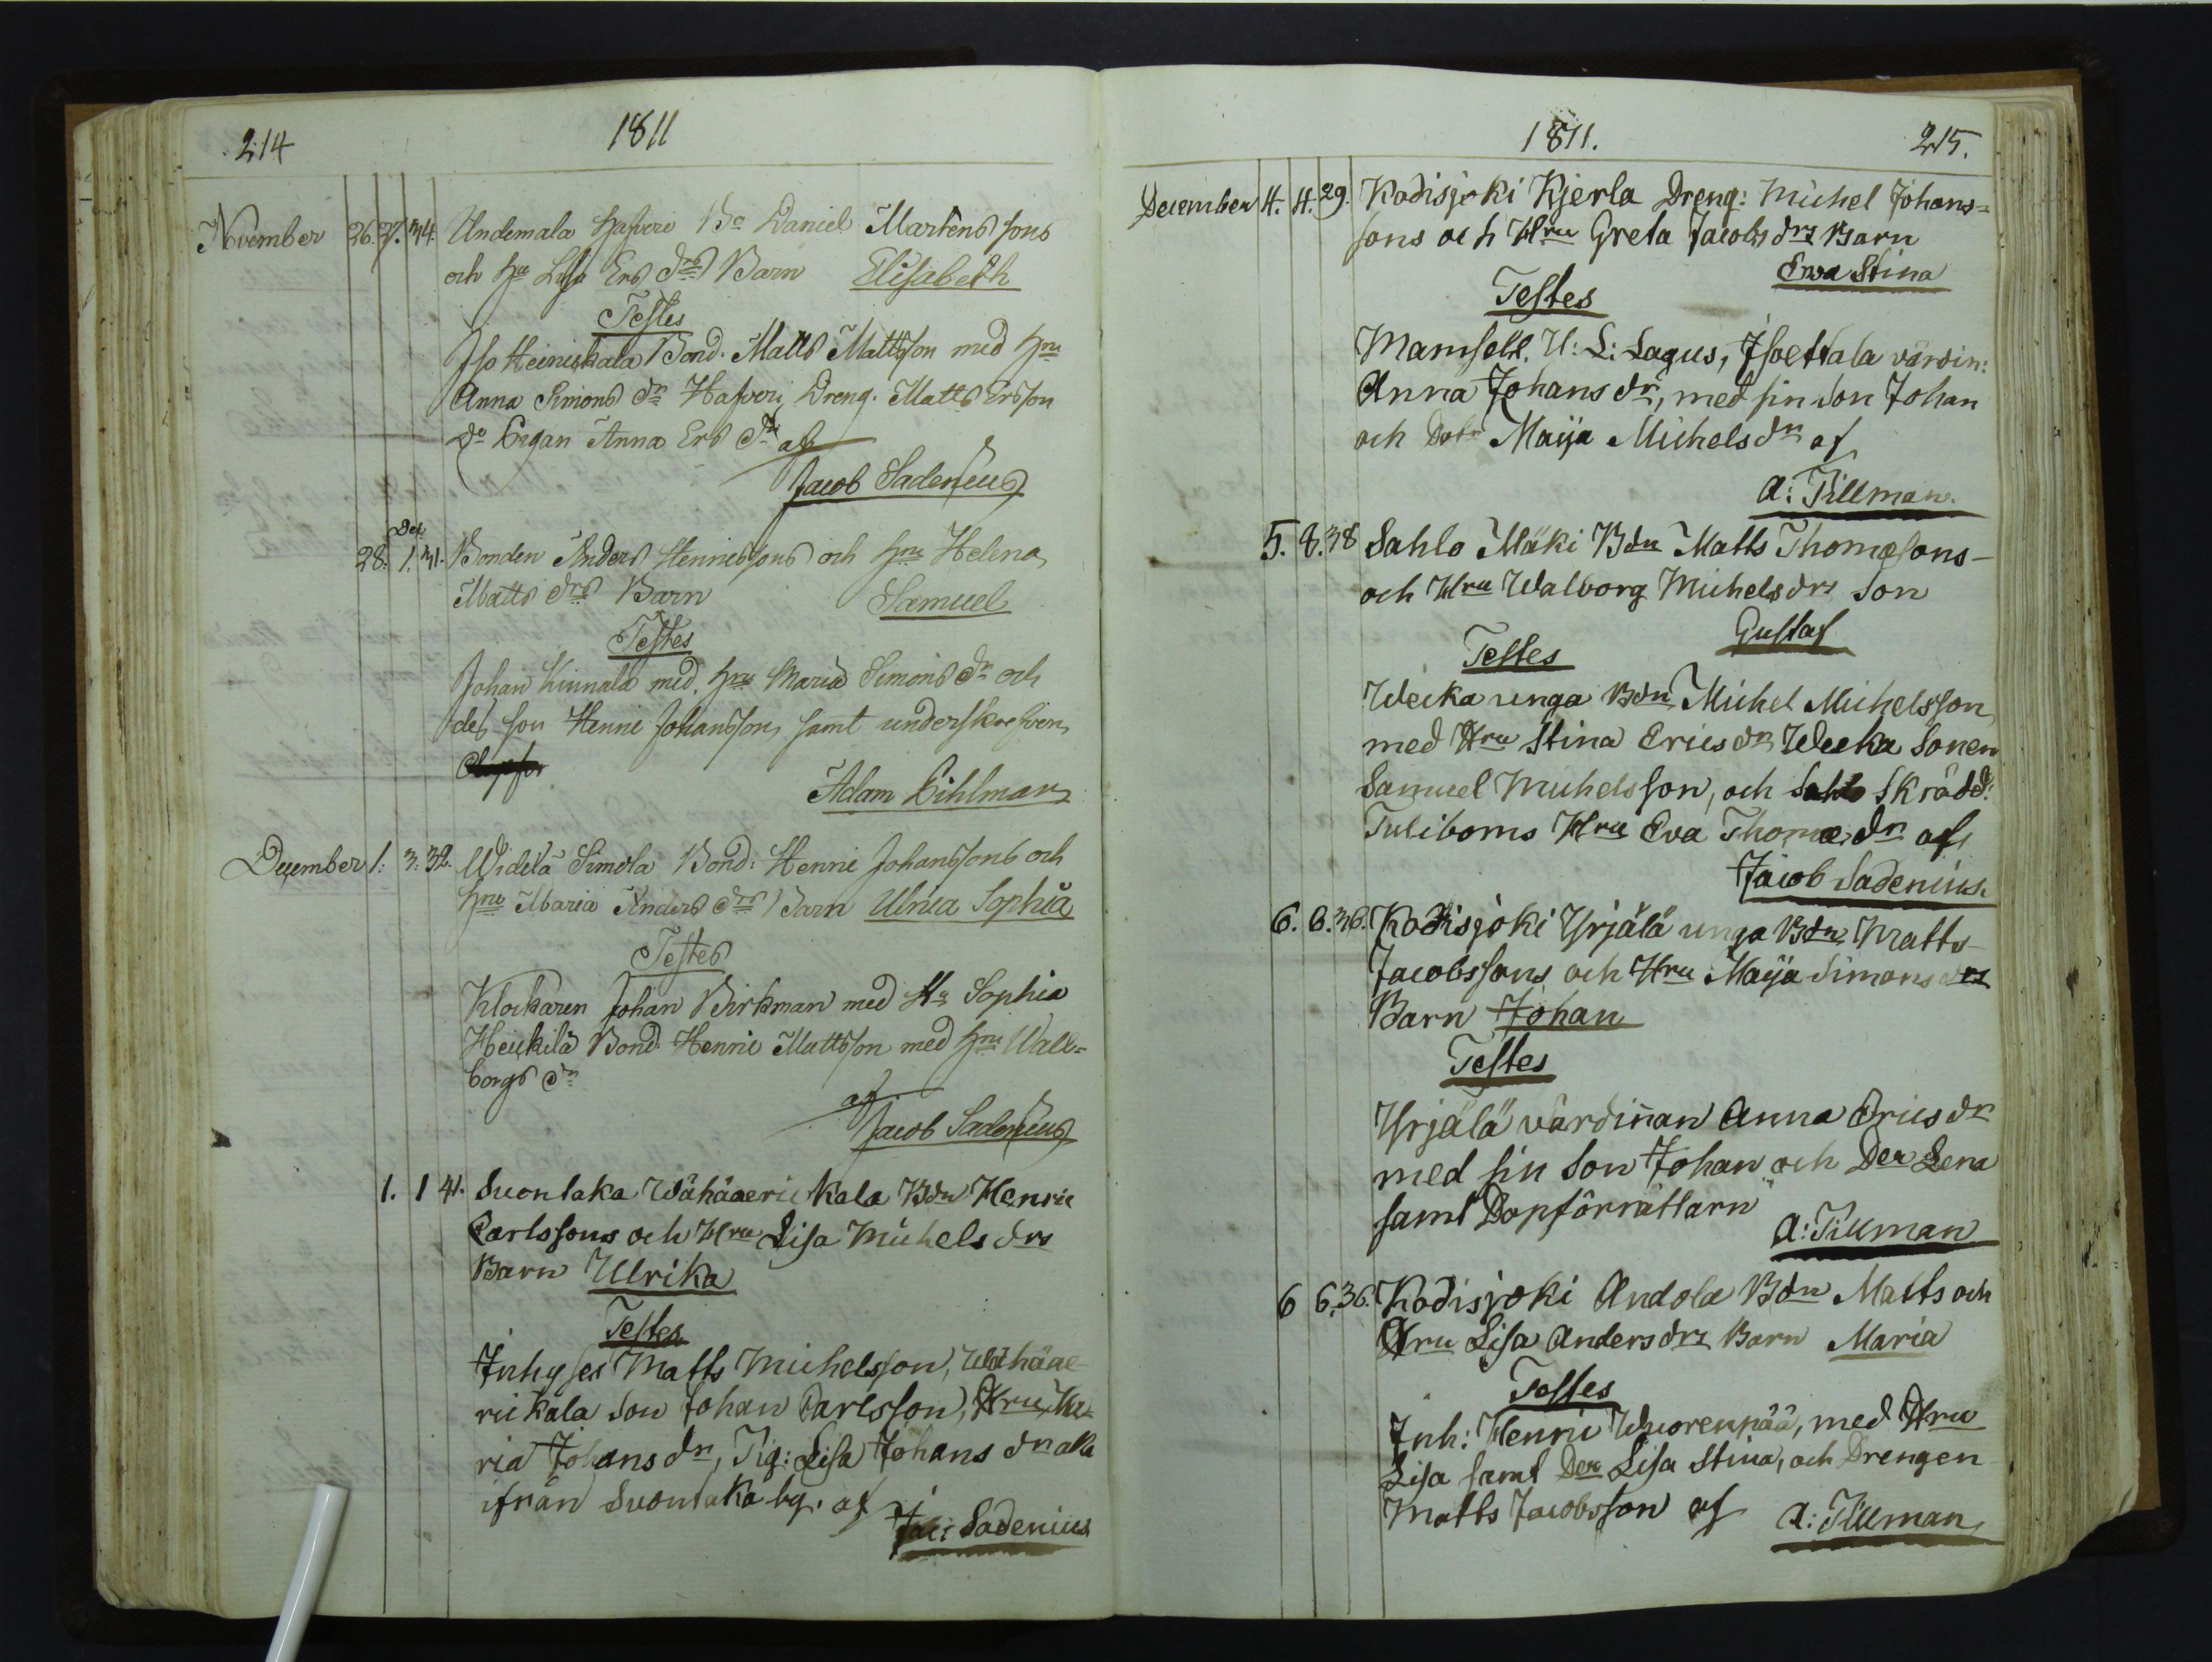 214
1811
November 26. 27. 34. Undemala Hafveri Bo Daniel Martens sons
och Hu Lisa Ers drs Barn Elisabeth
Testes
Iso Heinikkala Bond. Matts Mattsson med Hru
Anna Simons dr Hafveri Dreng. Matts Ersson
do Pigan Anna Ers dr af
Jacob Sadenius
Dec.
28. 1. 31. Bonden Anders Hennessons och Hru Helena
Matts drs Barn Samuel
Testes
Johan Kinnala med Hru Maria Simons dr och
des son Henric Johansson, samt underskrefven
Adam Cihlman
December 1: 3. 32. Widilä Simola Bond: Henric Johanssons och
Hru Maria Anders drs Barn Ulrica Sophia
Testes
Klockaren Johan Birkman med Hu Sophia
Heickilä Bond. Henric Mattsson med Hru Wall=
borgs dr
af
Jacob Sadenius
1. 1 41. Suontaka Wähäaerickala Bdn Henric
Carlssons och Hru Lisa Michels drs
Barn Ulrika
Testes
Inhyses Matts Michelsson, Wähäae-
rickala Son Johan Carlsson, Hru Ma=
ria Johans dr, Pig: Lisa Johans dr alla
ifrån Suontaka by. af
Jac: Sadenius
1811.
215.
December 4. 4. 29. Kodisjoki Kjerla Dreng: Michel Johans=
sons och Hru Greta Jacobs drs Barn
Ewa Stina
Testes
Mamsell. U: L: Lagus, Isoettala värdin:
Anna Johans dr, med sin Son Johan
och Dotr Maija Michels dr af
A: Tillman.
5. 8. 38 Sahlo Mäki Bdn Matts Thomæsons-
och Hru Walborg Michels drs Son
Gustaf
Testes
Wecka unga Bdn Michel Michelsson
med Hru Stina Erics dr Wecka Sonen
Samuel Michelsson, och Sahlo Skrädd:
Tuliboms Hru Eva Thomæ dr af
Jacob Sadenius.
6. 6. 36. Kodisjoki Yrjälä unga Bdn Matts
Jacobssons och Hru Maija Simons drs
Barn Johan
Testes
Yrjälä värdinan Anna Erics dr
med sin Son Johan och Der Lena
samt Dopförrättarn
A: Tillman
6 6. 36. Kodisjoki Andola Bdn Matts och
Hru Lisa Anders drs Barn Maria
Testes
Inh: Henric Wuorenpää, med Hru
Lisa samt Der Lisa Stina, och Drengen
Matts Jacobsson af A: Tillman